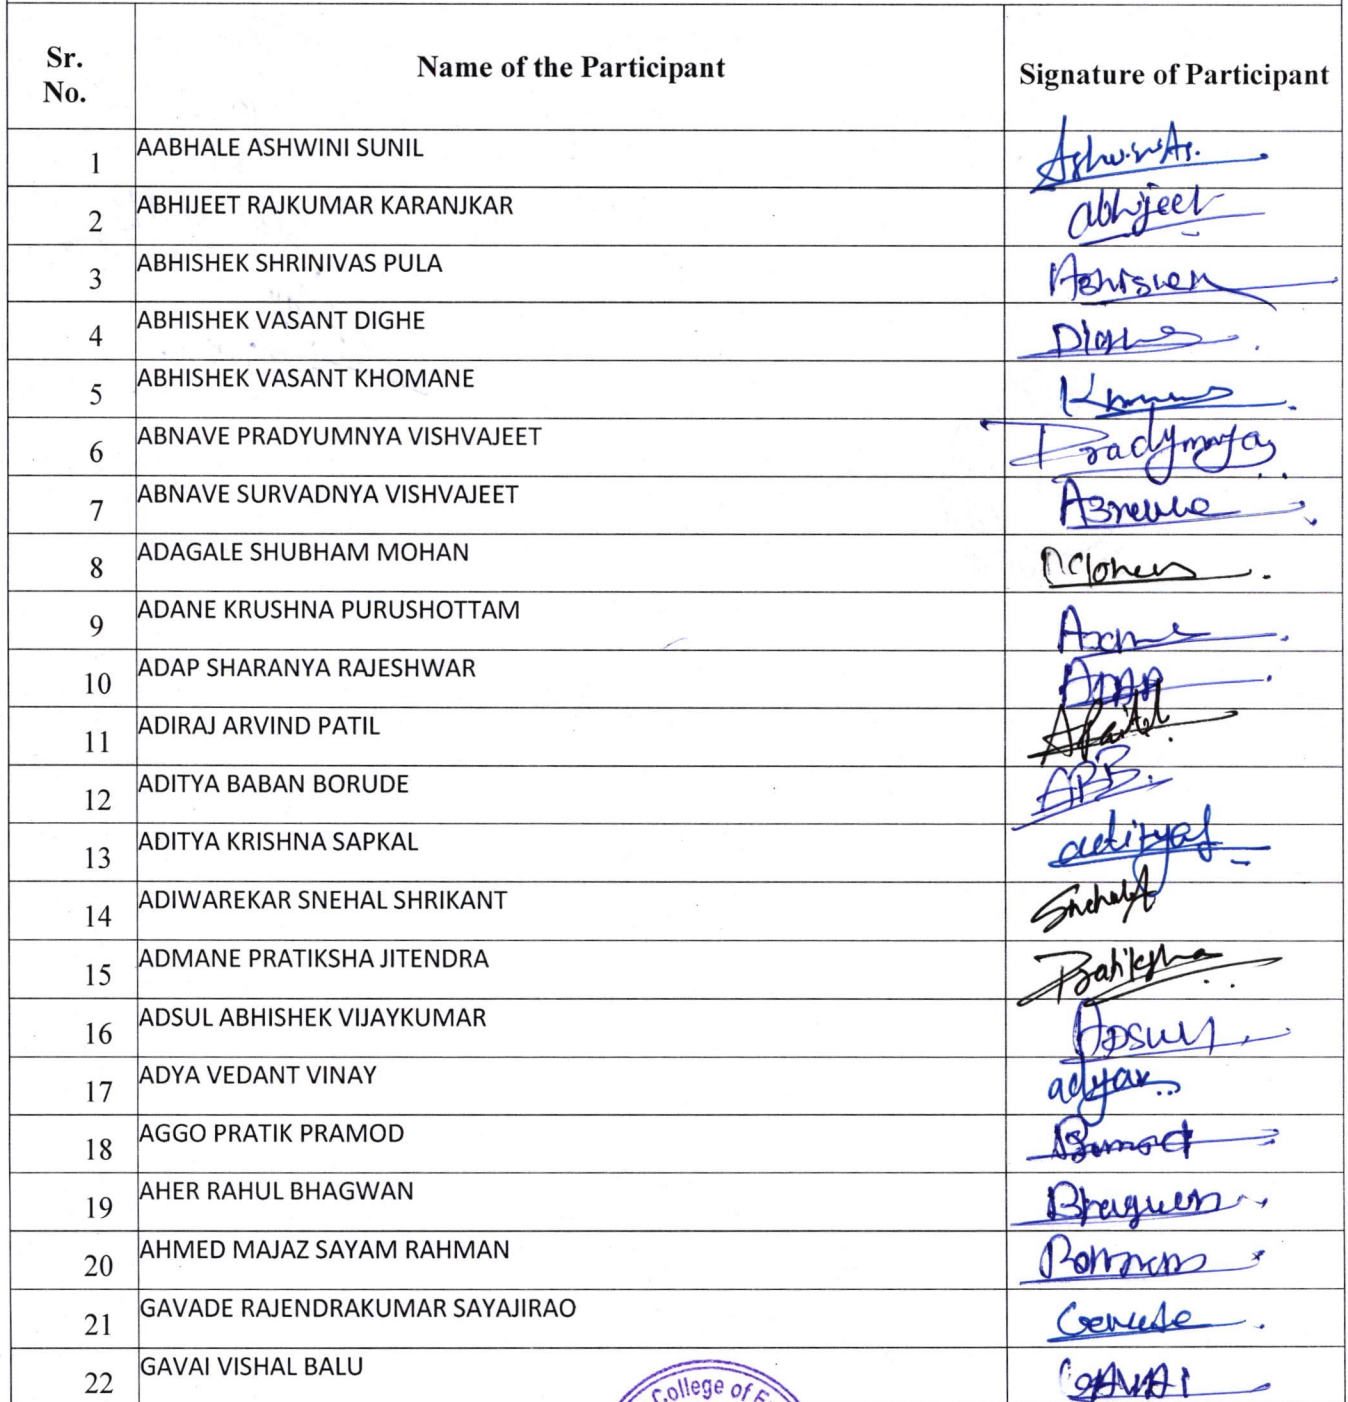 Sr. No. Name of the Participant Signature of Participant
1 AABHALE ASHWINI SUNIL AshwiniAs.
2 ABHIJEET RAJKUMAR KARANJKAR abhijeet
3 ABHISHEK SHRINIVAS PULA Abhishek
4 ABHISHEK VASANT DIGHE Dighe
5 ABHISHEK VASANT KHOMANE
6 ABNAVE PRADYUMNYA VISHVAJEET
7 ABNAVE SURVADNYA VISHVAJEET Abnave
8 ADAGALE SHUBHAM MOHAN
9 ADANE KRUSHNA PURUSHOTTAM
10 ADAP SHARANYA RAJESHWAR ADAP
11 ADIRAJ ARVIND PATIL APatil
12 ADITYA BABAN BORUDE ABB.
13 ADITYA KRISHNA SAPKAL adityas
14 ADIWAREKAR SNEHAL SHRIKANT SnehalA
15 ADMANE PRATIKSHA JITENDRA Pratiksha
16 ADSUL ABHISHEK VIJAYKUMAR ADSUL
17 ADYA VEDANT VINAY adyav
18 AGGO PRATIK PRAMOD
19 AHER RAHUL BHAGWAN Bhagwan
20 AHMED MAJAZ SAYAM RAHMAN
21 GAVADE RAJENDRAKUMAR SAYAJIRAO
22 GAVAI VISHAL BALU GAVAI
College of